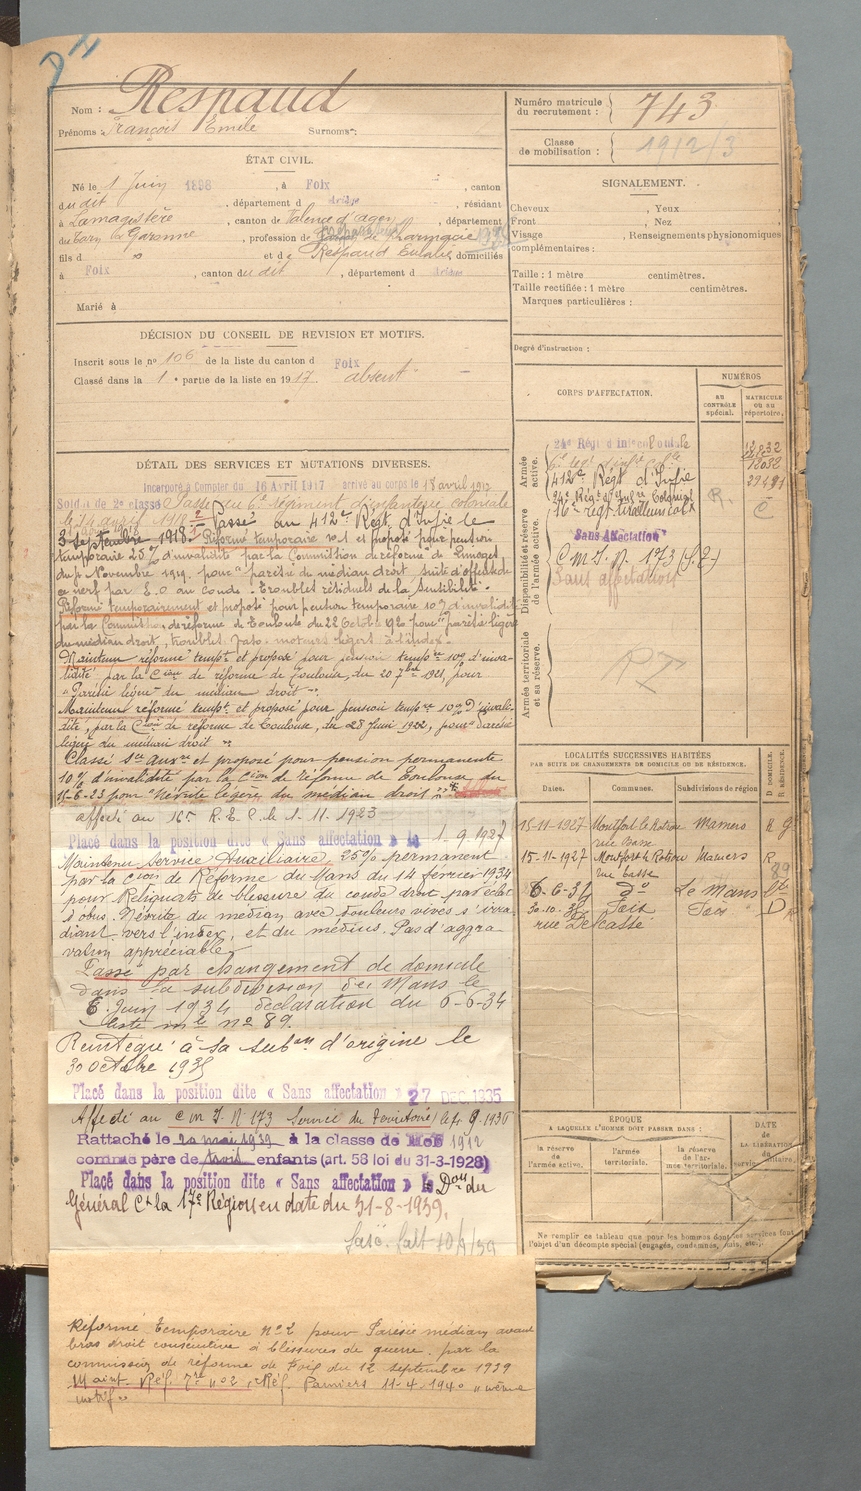 Nom : Respaud
Prénoms : François Emile Surnoms :
ÉTAT CIVIL.
Né le 1 Juin 1898, à Foix, canton
du dit, département d Ariège, résidant
à Lamagistère, canton de Valence d'agen, département
du Tarn et Garonne, profession de Pharmacie
fils d et de Respaud Eulalie domiciliés
à Foix, canton du dit, département d Ariège
Marié à
DÉCISION DU CONSEIL DE REVISION ET MOTIFS.
Inscrit sous le n° 106 de la liste du canton d Foix
Classé dans la 1e partie de la liste en 1917. absent
DÉTAIL DES SERVICES ET MUTATIONS DIVERSES.
Incorporé à Compter du 16 Avril 1917 arrivé au corps le 18 avril 1917
Soldat de 2e classe Passé au 6e régiment d'infanterie coloniale
le 14 avril 1918. Passé au 412e Régt d'Infie le
3 septembre 1918. Réformé temporaire n°1 et proposé pour pension
temporaire 25% d'invalidité par la Commission de réforme de Limoges,
du Novembre 1919. pour parésie du médian droit, suite d'offense de
ce nerf par E.O au coude. Troubles résiduels de la sensibilité.
Réformé temporairement et proposé pour pension temporaire 10% d'invalidité
par la Commission de réforme de Toulouse du 22 Octobre 1920 pour parésie légère
du médian droit, troubles vaso-moteurs légers à l'index.
Maintenu réformé tempre et proposé pour pension tempre 10% d'inva-
lidité par la Cion de réforme de Toulouse, du 20 7bre 1921, pour
"Parésie légère du médian droit".
Maintenu réformé tempre et proposé pour pension tempre 10% d'invali-
dité, par la Cion de réforme de Toulouse, du 28 Juin 1922, pour parésie
légère du médian droit"
Classé sce auxre et proposé pour pension permanente
10% d'invalidité par la Cion de réforme de Toulouse du
15-6-23 pour "Névrite légère du médian droit"
affecté au 16e R.T.C. le 1-11-1923
Placé dans la position dite « Sans affectation » le 1-9-1927
Maintenu Service Auxiliaire, 25% permanent
par la Cion de Réforme du Mans du 14 février 1934
pour Reliquats de blessure du coude droit par éclat
d'obus. Névrite du médian avec douleurs vives s'irra-
diant vers l'index, et du médius. Pas d'aggra-
vation appréciable
Passé par changement de domicile
dans la subdivision du Mans le
6 Juin 1934 déclaration du 6-6-34
liste mle n° 89.
Réintégré à sa subon d'origine le
30 octobre 1935
Placé dans la position dite « Sans affectation » 27 DEC. 1935
Affecté au C M I. N. 173 Service du Territoire
Rattaché le 20 mai 1939 à la classe de Mob 1912
comme père de trois enfants (art. 58 loi du 31-3-1928)
Placé dans la position dite « Sans affectation » le Don du
Général Ct la 17e Région en date du 31-8-1939.
Réformé temporaire N°2 pour Parésie médian avant
bras droit consécutive à blessures de guerre. par la
commission de réforme de Foix du 12 septembre 1939
Maint. Réf. Tre n°2, C. Réf. Pamiers 11-4-1940 "même
motif"
Numéro matricule
du recrutement : 743
Classe
de mobilisation : 1912/3
SIGNALEMENT.
Cheveux , Yeux
Front , Nez
Visage , Renseignements physionomiques
complémentaires :
Taille : 1 mètre centimètres.
Taille rectifiée : 1 mètre centimètres.
Marques particulières :
Degré d'instruction :
CORPS D'AFFECTATION.
NUMÉROS
AU CONTRÔLE spécial.
MATRICULE OU AU RÉPERTOIRE.
Armée active.
24e Régt d'Infie coloniale
6e regt d'infie colle
412e Regt d'Infie
24e Régt d'Infie Coloniale
16e régt tirailleurs colx
Disponibilité et réserve de l'armée active.
Sans Affectation
C M I. N. 173
Sans affectation
Armée territoriale et sa réserve.
LOCALITÉS SUCCESSIVES HABITÉES
PAR SUITE DE CHANGEMENTS DE DOMICILE OU DE RÉSIDENCE.
Dates. Communes. Subdivisions de région D DOMICILE. R RÉSIDENCE.
15-11-1927 Montfort le Rotrou Mamers R
rue Basse
15-11-1927 Montfort le Rotrou Mamers R
rue basse
6-6-34 do Le Mans
30-10-35 Foix Foix D
rue Delcassé
ÉPOQUE
A LAQUELLE L'HOMME DOIT PASSER DANS :
la réserve de l'armée active.
l'armée territoriale.
la réserve de l'armée territoriale.
DATE de LA LIBÉRATION du service militaire.
Ne remplir ce tableau que pour les hommes dont les services font
l'objet d'un décompte spécial (engagés, condamnés, omis, etc.).